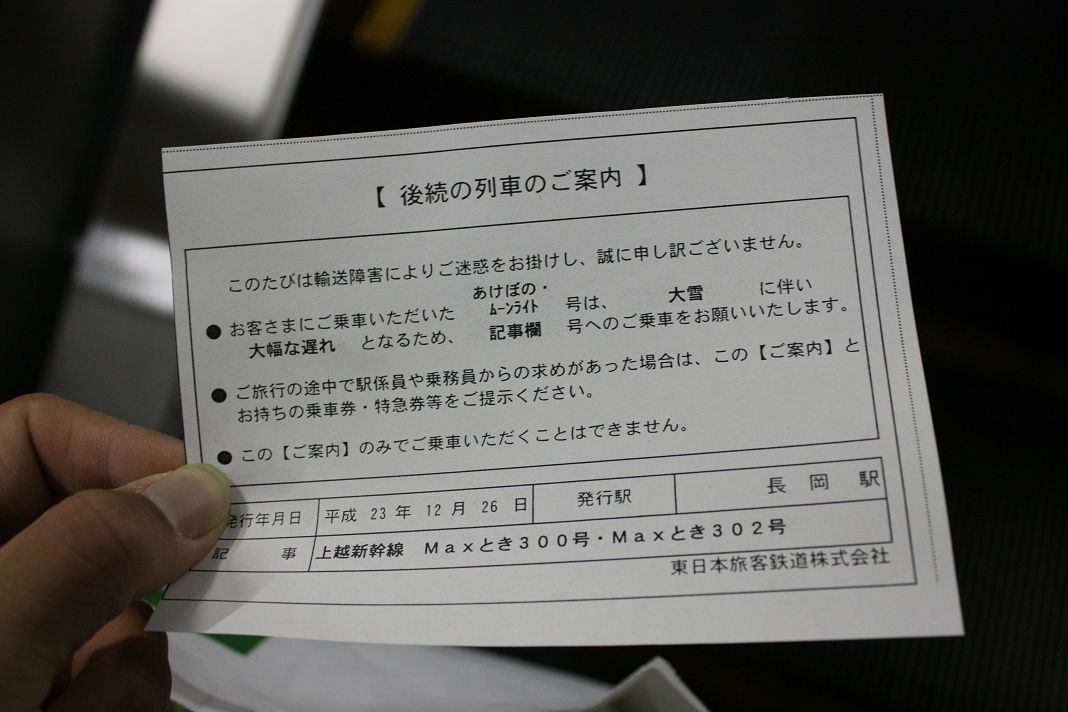 【 後続の列車のご案内 】
このたびは輸送障害によりご迷惑をお掛けし、誠に申し訳ございません。
● お客さまにご乗車いただいた あけぼの・ムーンライト 号は、 大雪 に伴い
大幅な遅れ となるため、 記事欄 号へのご乗車をお願いいたします。
● ご旅行の途中で駅係員や乗務員からの求めがあった場合は、この【ご案内】と
お持ちの乗車券・特急券等をご提示ください。
● この【ご案内】のみでご乗車いただくことはできません。
発行年月日 平成 23 年 12 月 26 日 発行駅 長岡駅
記事 上越新幹線 Maxとき300号・Maxとき302号
東日本旅客鉄道株式会社